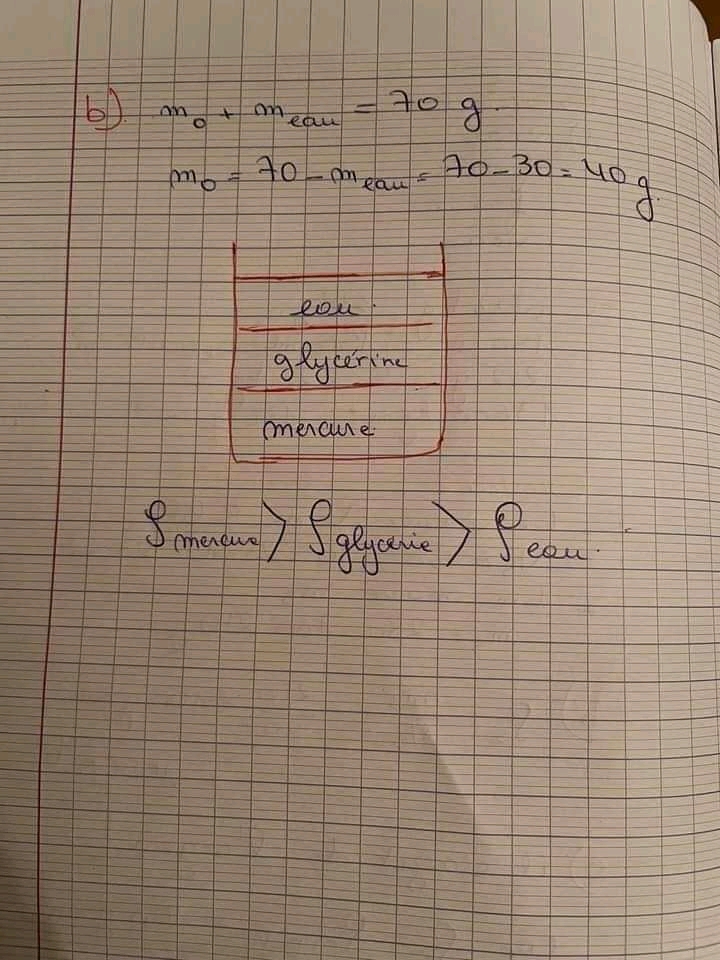 b). m₀ + m eau = 70 g.
m₀ = 70 - m eau = 70 - 30 = 40 g.
eau.
glycérine
mercure
ρ mercure > ρ glycerie > ρ eau.